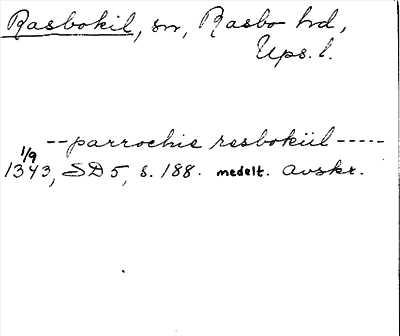 Rasbokil, sn, Rasbo hd,
Ups. l.
-- parrochie resbokiil -----
1/9
1343, SD 5, s. 188. medelt. avskr.